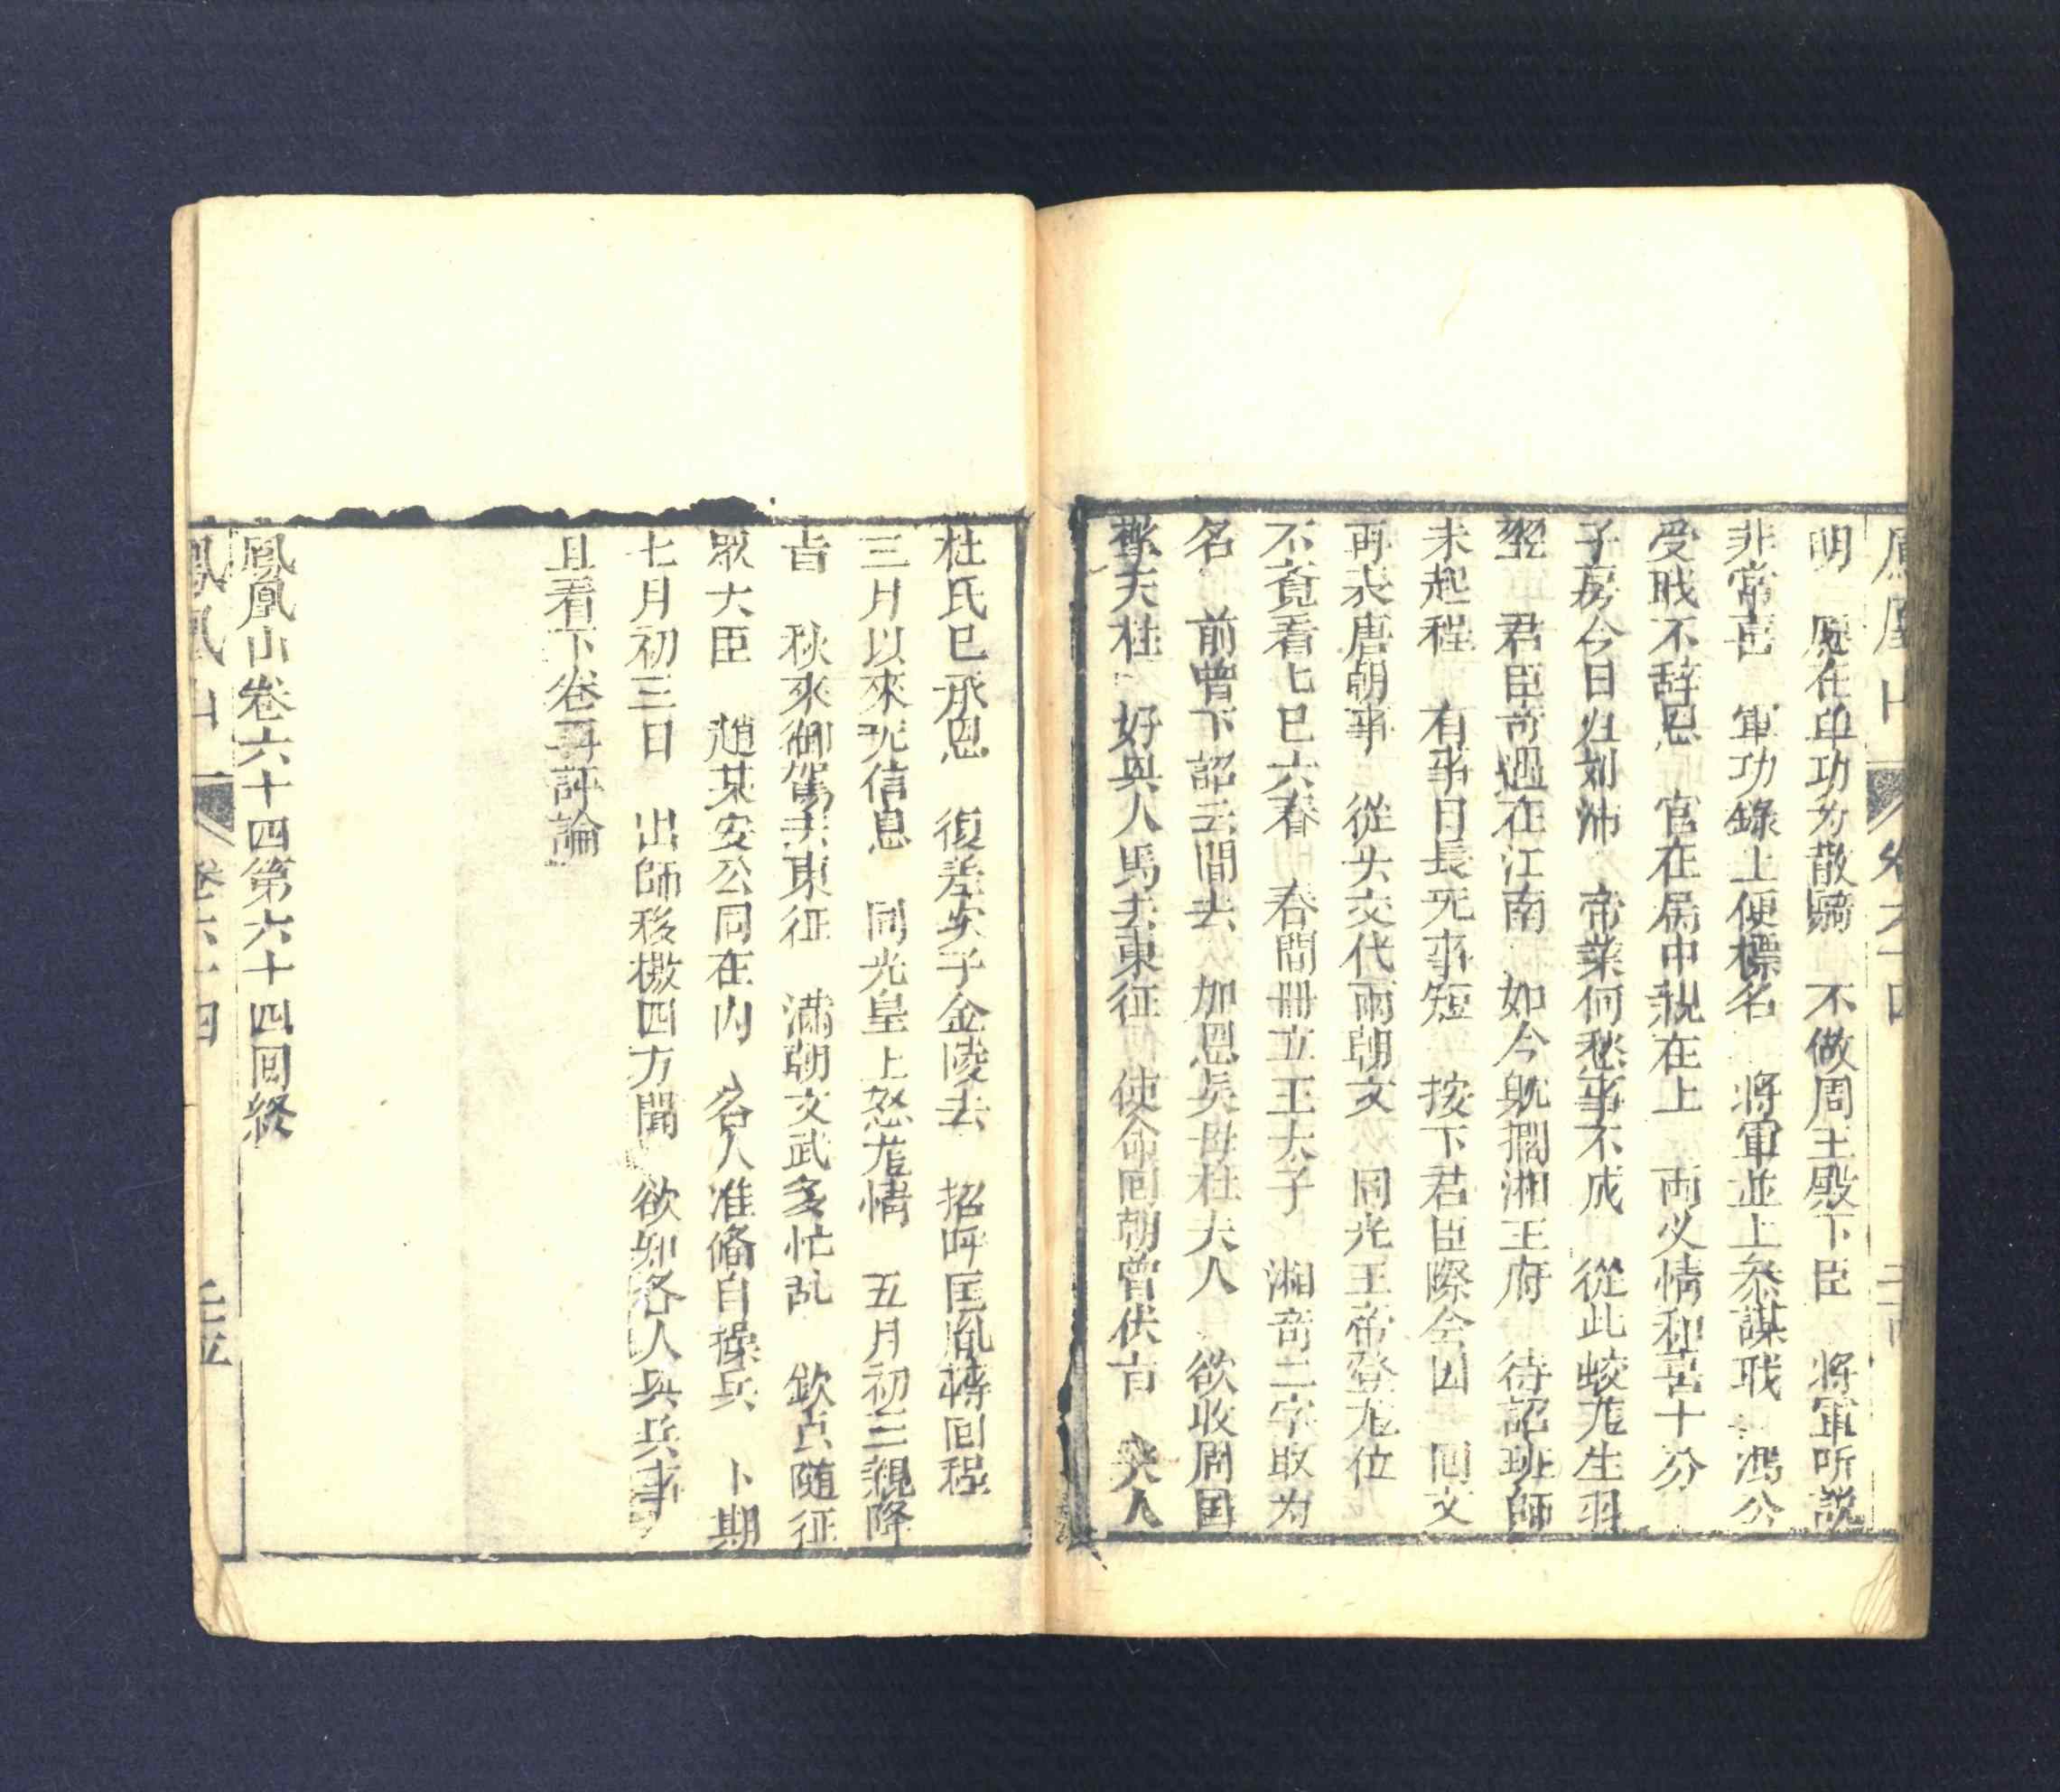 鳳凰山 卷六十四
明 愿在軍功为散職 不做周王殿下臣 将軍所說
非常喜 軍功錄上便標名 将軍並上叅謀戝 馮公
受戝不辞恩 官在居中親在上 両火情和喜十分
子房今日归刘沛 帝業何愁事不成 從此蛟龙生羽
翌 君臣竒遇在江南 如今躭擱湘王府 待詔班師
未起程 有事日長无事短 按下君臣際会因 囬文
再表唐朝事 從头交代兩朝文 同光王帝登龙位
不覚看七巳六春 春間冊立王太子 湘竒二字取为
名 前曾下詔云間去 加恩吳母杜夫人 欲收周囯
擎天柱 好與人馬去東征 使命囬朝曾伏㫖 夫人
杜氏已承恩 復差安子金陵去 招呼匡胤轉囬程
三月以來无信息 同光皇上怒龙情 五月初三親降
㫖 秋來御駕去東征 滿朝文武多忙乱 欽点随征
眾大臣 趙某安公同在内 各人准俻自操兵 卜期
七月初三日 出師移檄四方聞 欲知各人與兵事
且看下卷再評論
鳳凰山卷六十四第六十四回終
鳳凰山 卷六十四